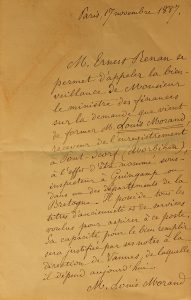 Paris, 17 novembre 1887.
M. Ernest Renan se
permet d'appeler la bien-
veillance de Monsieur
le ministre des finances
sur la demande que vient
de former M. Louis Morand,
receveur de l'enregistrement
à Pont-Scorff (Morbihan)
à l'effet d'être nommé sous-
inspecteur à Guingamp ou
dans un des départements de la
Bretagne. Il possède tous les
titres d'ancienneté et de services
voulus pour aspirer à ce poste.
Sa capacité pour le bien remplir
sera justifiée par ses notes à la
direction de Vannes, de laquelle
il dépend aujourd'hui.
M. Louis Morand